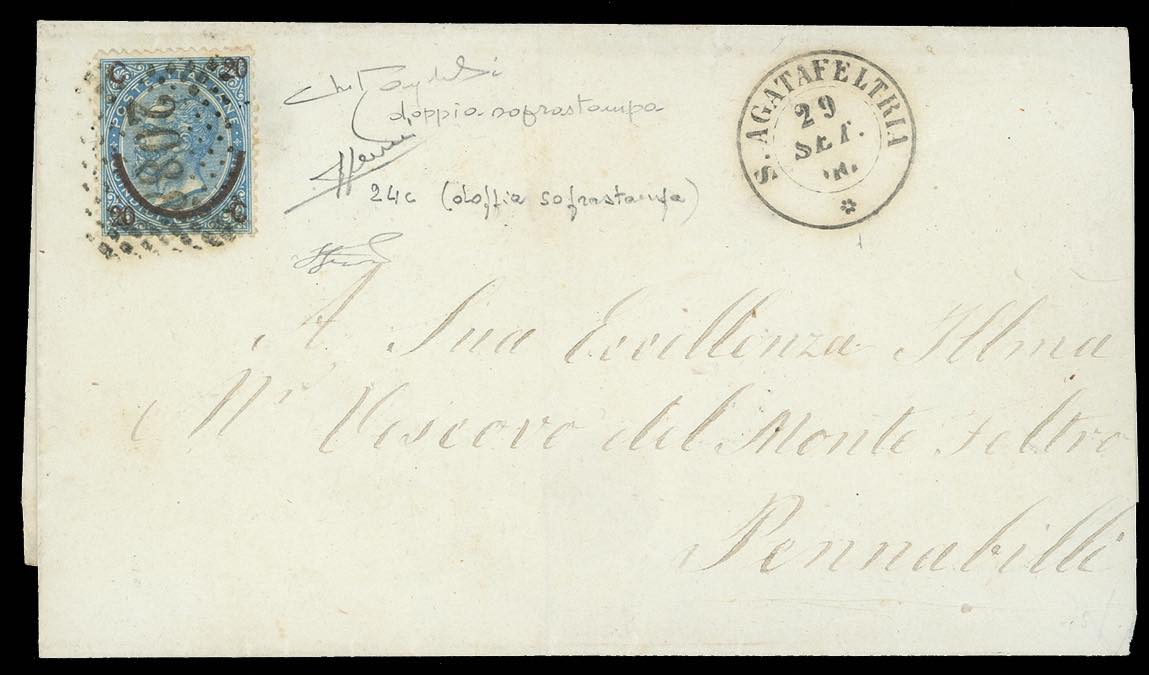 C 20
POSTE ITALIANE
2082
20 C
doppia sofrastampa
24c (doffia sofrastampa)
S. AGATAFELTRIA
29
SET.
A Sua Eccellenza Illma
Mr Vescovo del Monte Feltro
Pennabilli